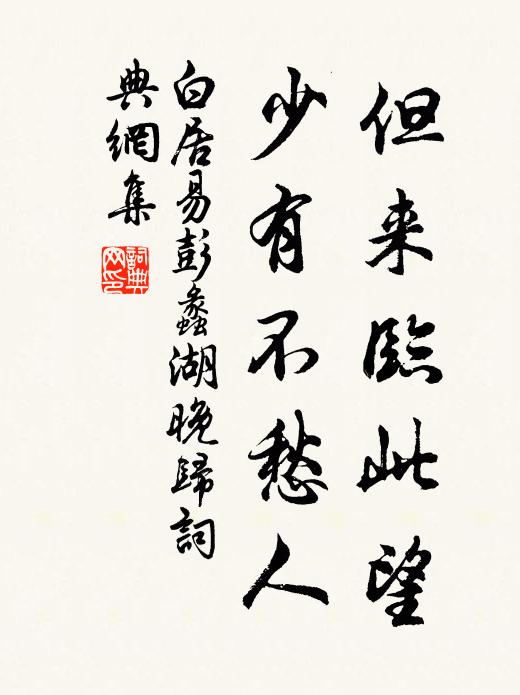 但来臨此望
少有不愁人
白居易彭蠡湖晚歸詞
典網集
詞典
网印